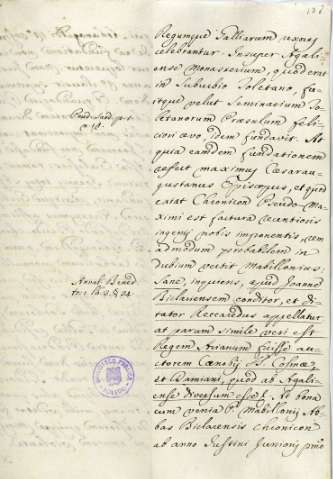 Regumque Galliarum exinij
celebrantur. Insuper Agali-
ense Monasterium, quod erat
in Suburbio Toletano, fu-
itque velut Seminarium To-
letanorum Præsulum feli-
ciori ævo idem fundavit. At
quia eamdem fundationem
asserit maximus Cæsarau-
gustanus Episcopus, et quod
extat Chronicon Pseudo-Ma-
ximi est factura recentioris
ingenij nobis imponentis, rem
admodum probabilem in
dubium vertit Mabillonius
Sane, inquiens, apud Joannem
Biclariensem conditor, et di-
tator Reccaredus appellatur
at parum simile veri est
Regem Arianum fuisse auc-
torem Cœnobij SS. Cosmæ,
et Damiani, quod ab Agali-
ense diversum esse. At bona
cum venia P. Mabillonij Ab-
bas Biclarensis Chronicon
ab anno Justini Junioris primo
Annal. Bened.
BIBLIOTECA PUBLICA